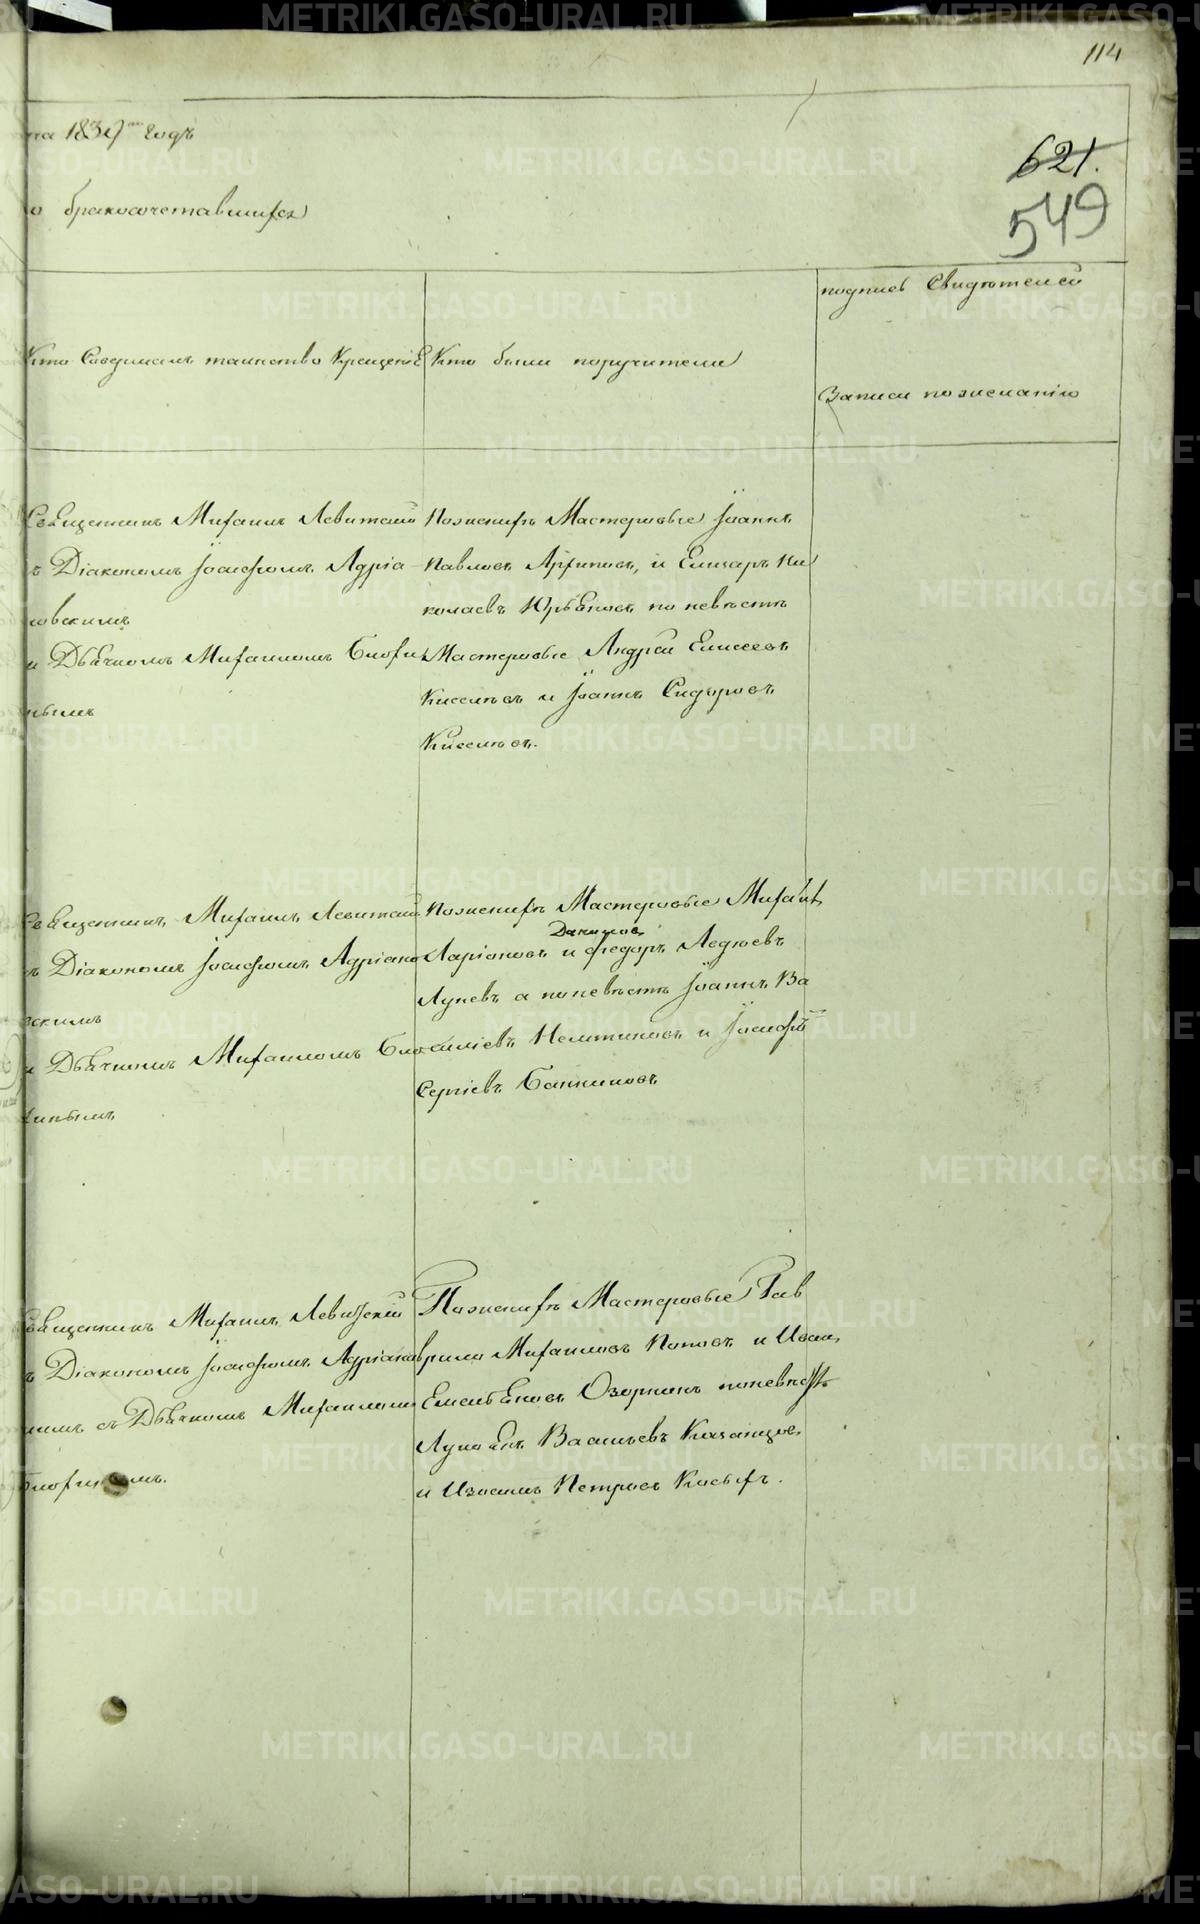 114
на 1839го годъ
621.
549
о бракосочетавшихся
Кто Совершалъ таинство Крещенiе
Кто были поручители
подпись Свидѣтелей
Записи по желанiю
Священникъ Михаилъ Левитскiй
ъ Дiакономъ Iосифомъ Адрiа
новскимъ
и Дьячкомъ Михаиломъ Словц
нымъ
Поженихѣ Мастеровые Iоаннъ
Павловъ Архиповъ, и Елизаръ Ни
колаевъ Юрьевъ по невѣстѣ
Мастеровые Андрей Елисеевъ
Киселевъ и Iоаннъ Сидоровъ
Киселевъ.
Священникъ Михаилъ Левитскiй
ъ Дiакономъ Iосифомъ Адрiано
вскимъ
и Дьячкомъ Михаиломъ
Поженихѣ Мастеровые Михаилъ
Данилов
Ларiоновъ и Федоръ
Луневъ а поневѣстѣ Iоаннъ Ва
силiевъ и Iосифъ
Сергiевъ
Священникъ Михаилъ Левитскiй
ъ Дiакономъ Iосифомъ Адрiанов
скимъ съ Дьячкомъ Михаиломъ
Поженихѣ Мастеровые Гав
рило Михаиловъ Поповъ и Иван
Емельяновъ Озорнинъ поневѣстѣ
Лукоянъ Васильевъ Казанцов
и Изосимъ Петровъ Косыхъ.
METRIKI.GASO-URAL.RU